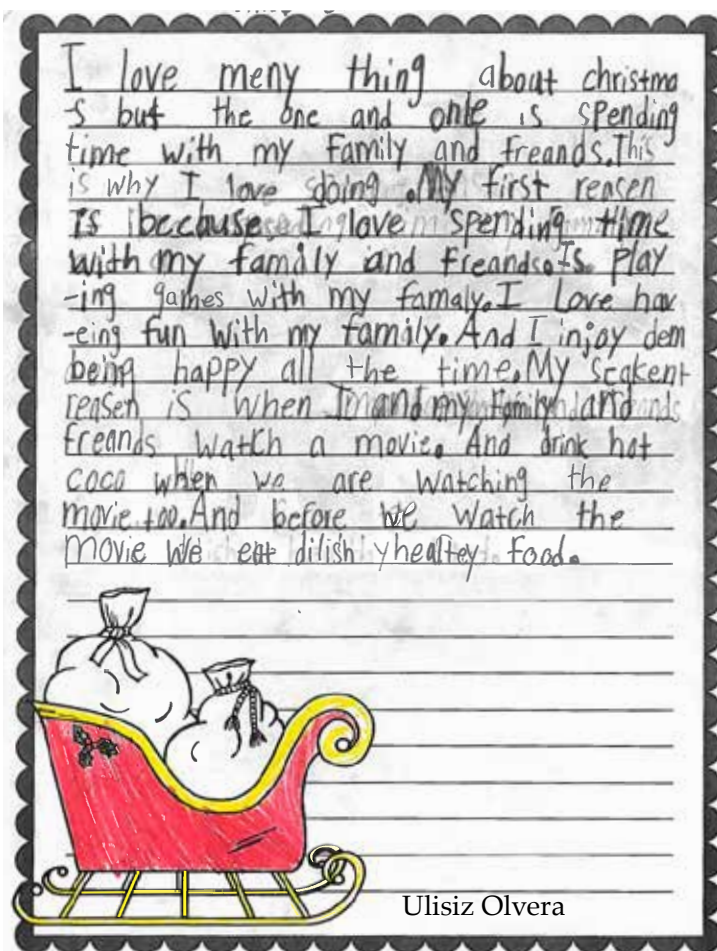 I love meny thing about christma
-s but the one and onle is spending
time with my Family and freands.This
is why I love sdoing .My first reasen
Is because I love spending time
with my family and Freands. Is play
-ing games with my famaly.I Love hav
-eing fun with my family. And I injoy dem
being happy all the time. My seckent
reasen is when I and my family and
freands watch a movie. And drink hot
coco when we are watching the
movie too. And before we watch the
movie we eat dilish y healtey food.
Ulisiz Olvera